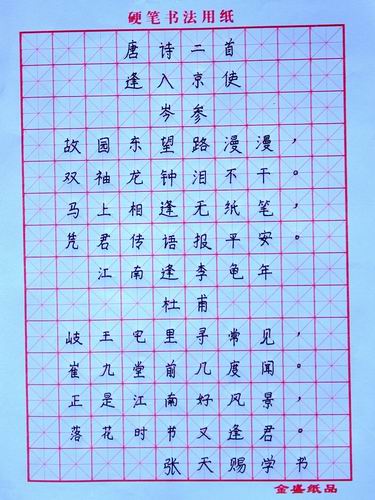 硬笔书法用纸
唐诗二首
逢入京使
岑参
故园东望路漫漫，
双袖龙钟泪不干。
马上相逢无纸笔，
凭君传语报平安。
江南逢李龟年
杜甫
岐王宅里寻常见，
崔九堂前几度闻。
正是江南好风景，
落花时书又逢君。
张天赐学书
金盛纸品